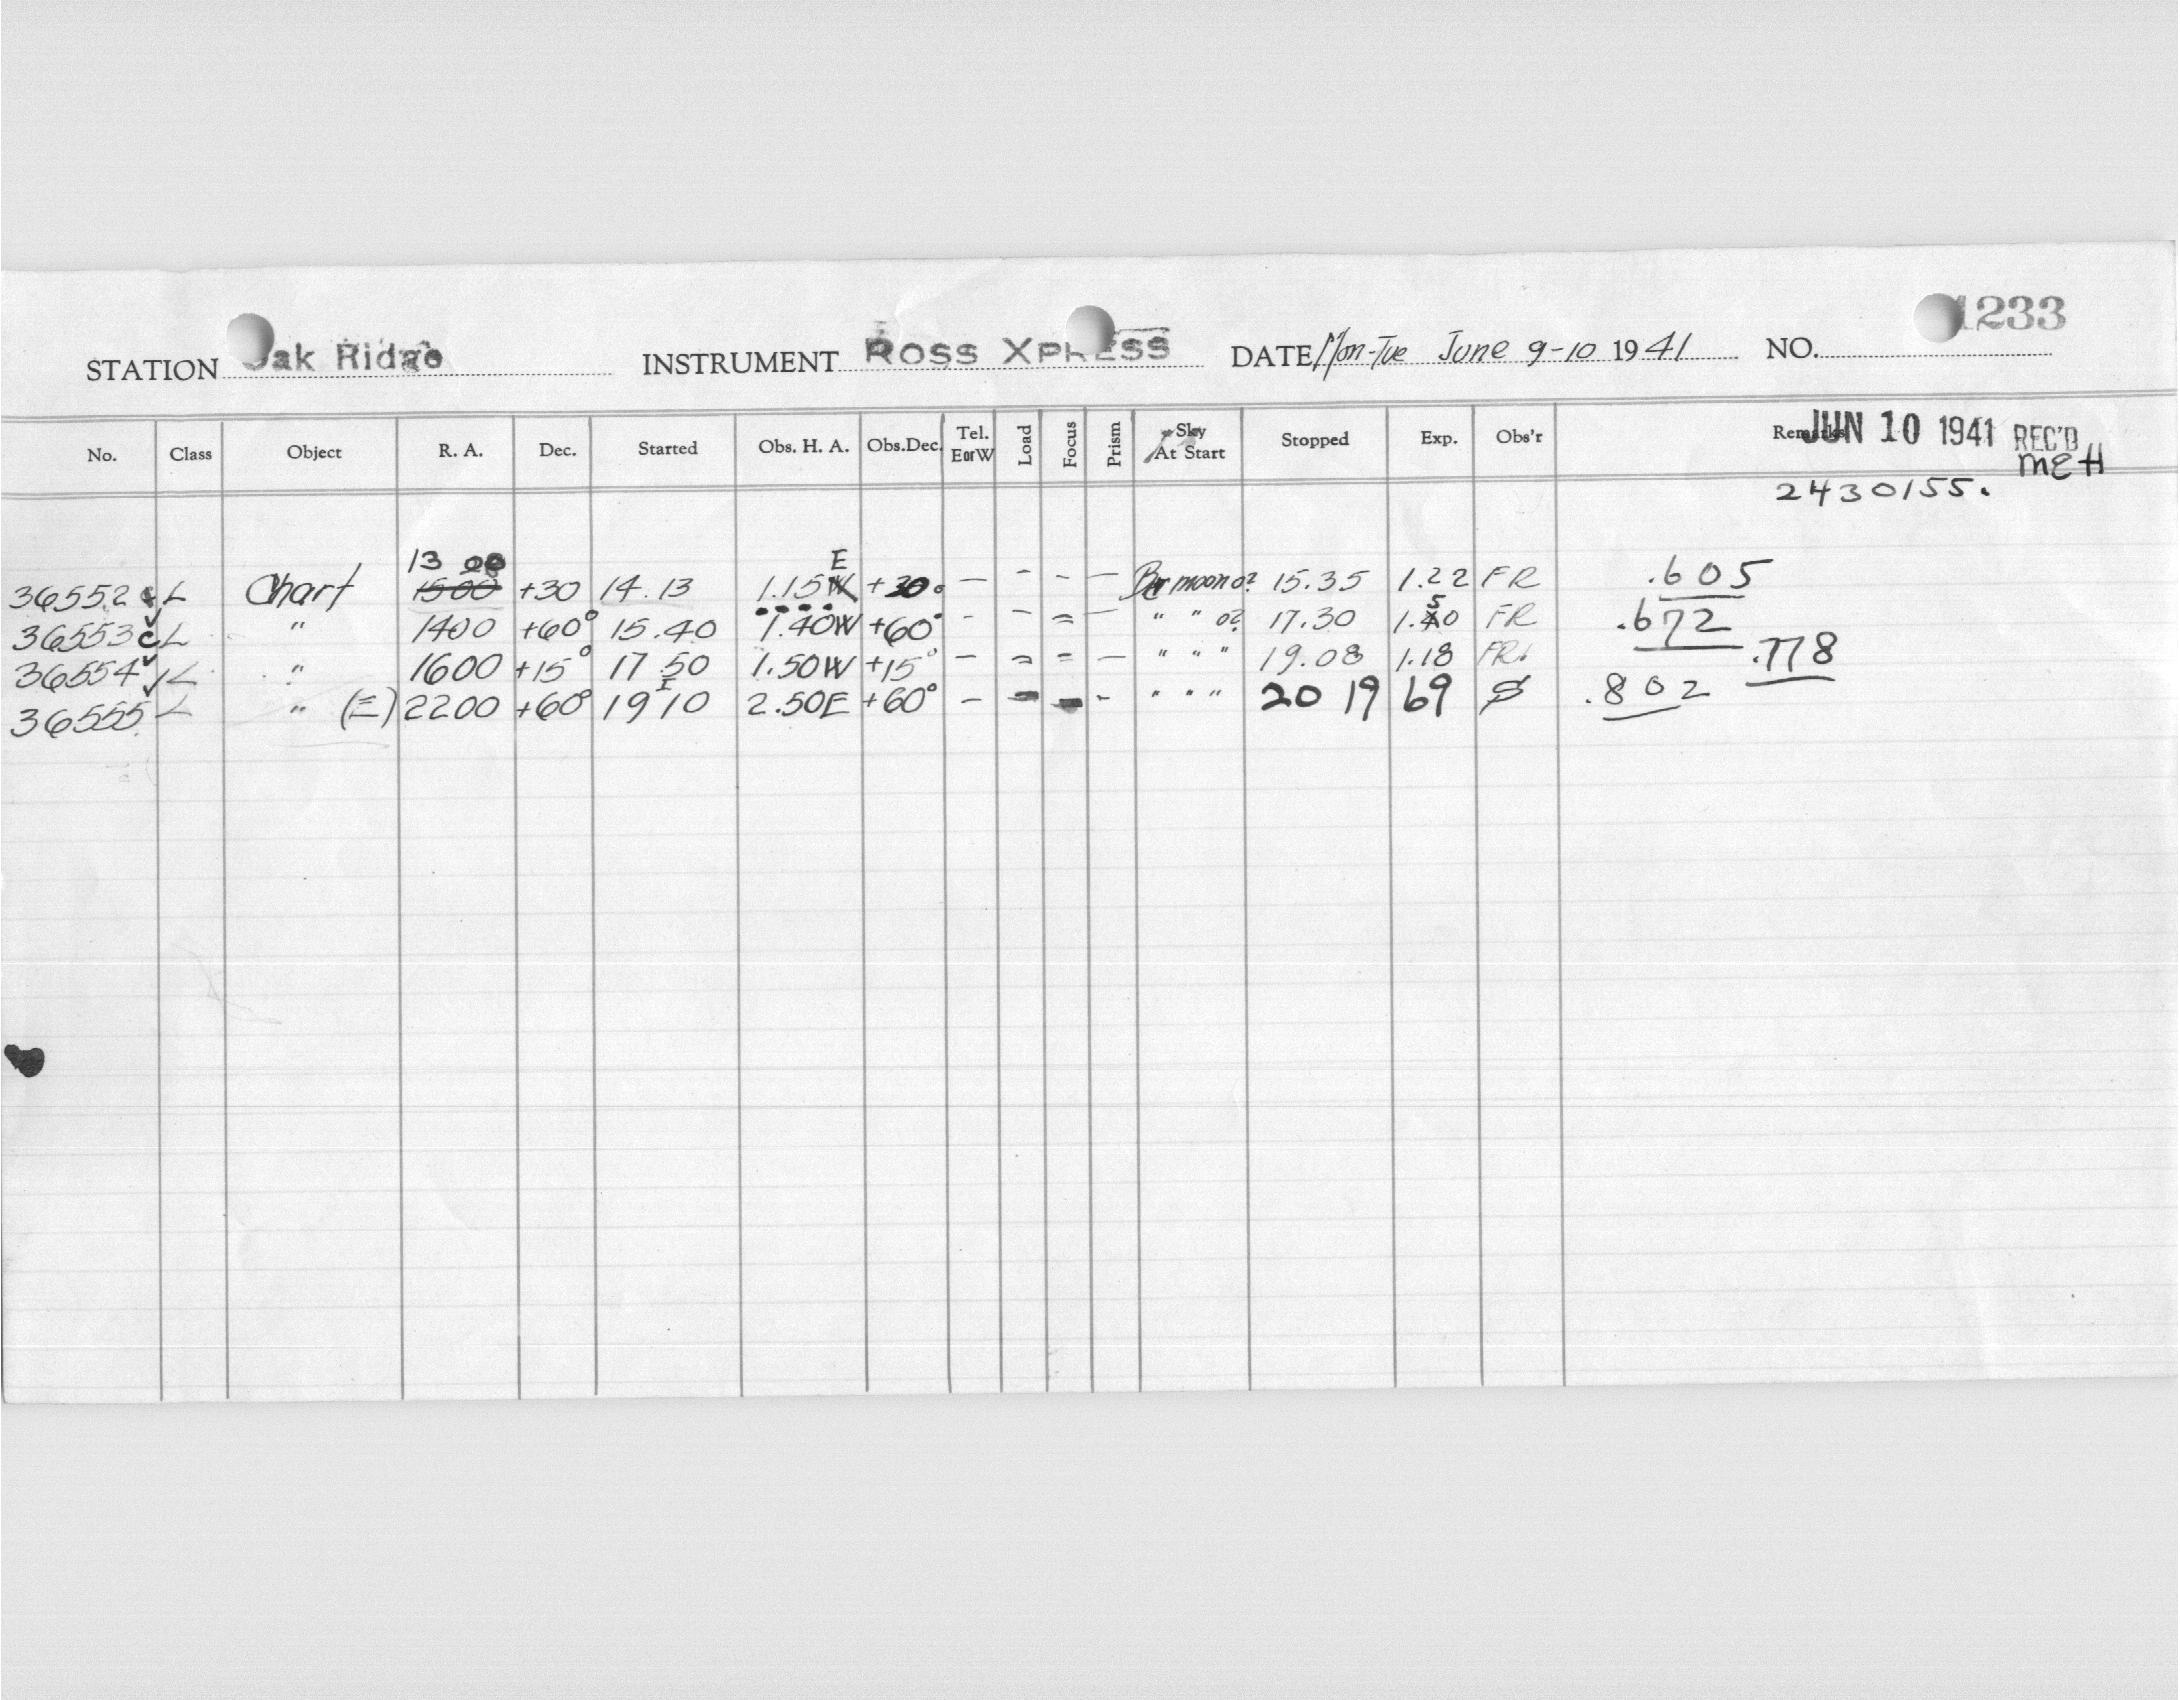 1233
STATION Oak Ridge INSTRUMENT ROSS XPRESS DATE Mon-Tue June 9-10 1941 NO.
No. Class Object R. A. Dec. Started Obs. H. A. Obs.Dec. Tel. EorW Load Focus Prism Sky At Start Stopped Exp. Obs'r Remarks JUN 10 1941 REC'D
MEH
2430155.
13 00 E
36552 L Chart 1500 +30 14.13 1.15W +30° — - - — moon 0? 15.35 1.22 FR .605
36553 c L " 1400 +60° 15.40 1.40W +60° - - = — " " 0? 17.30 1.50 FR .672
36554 L " 1600 +15° 17 50 1.50W +15° — = = — " " " 19.08 1.18 FR. .778
36555 L " (E) 2200 +60° 19 10 2.50E +60° - - - - " " " 20 19 69 .802